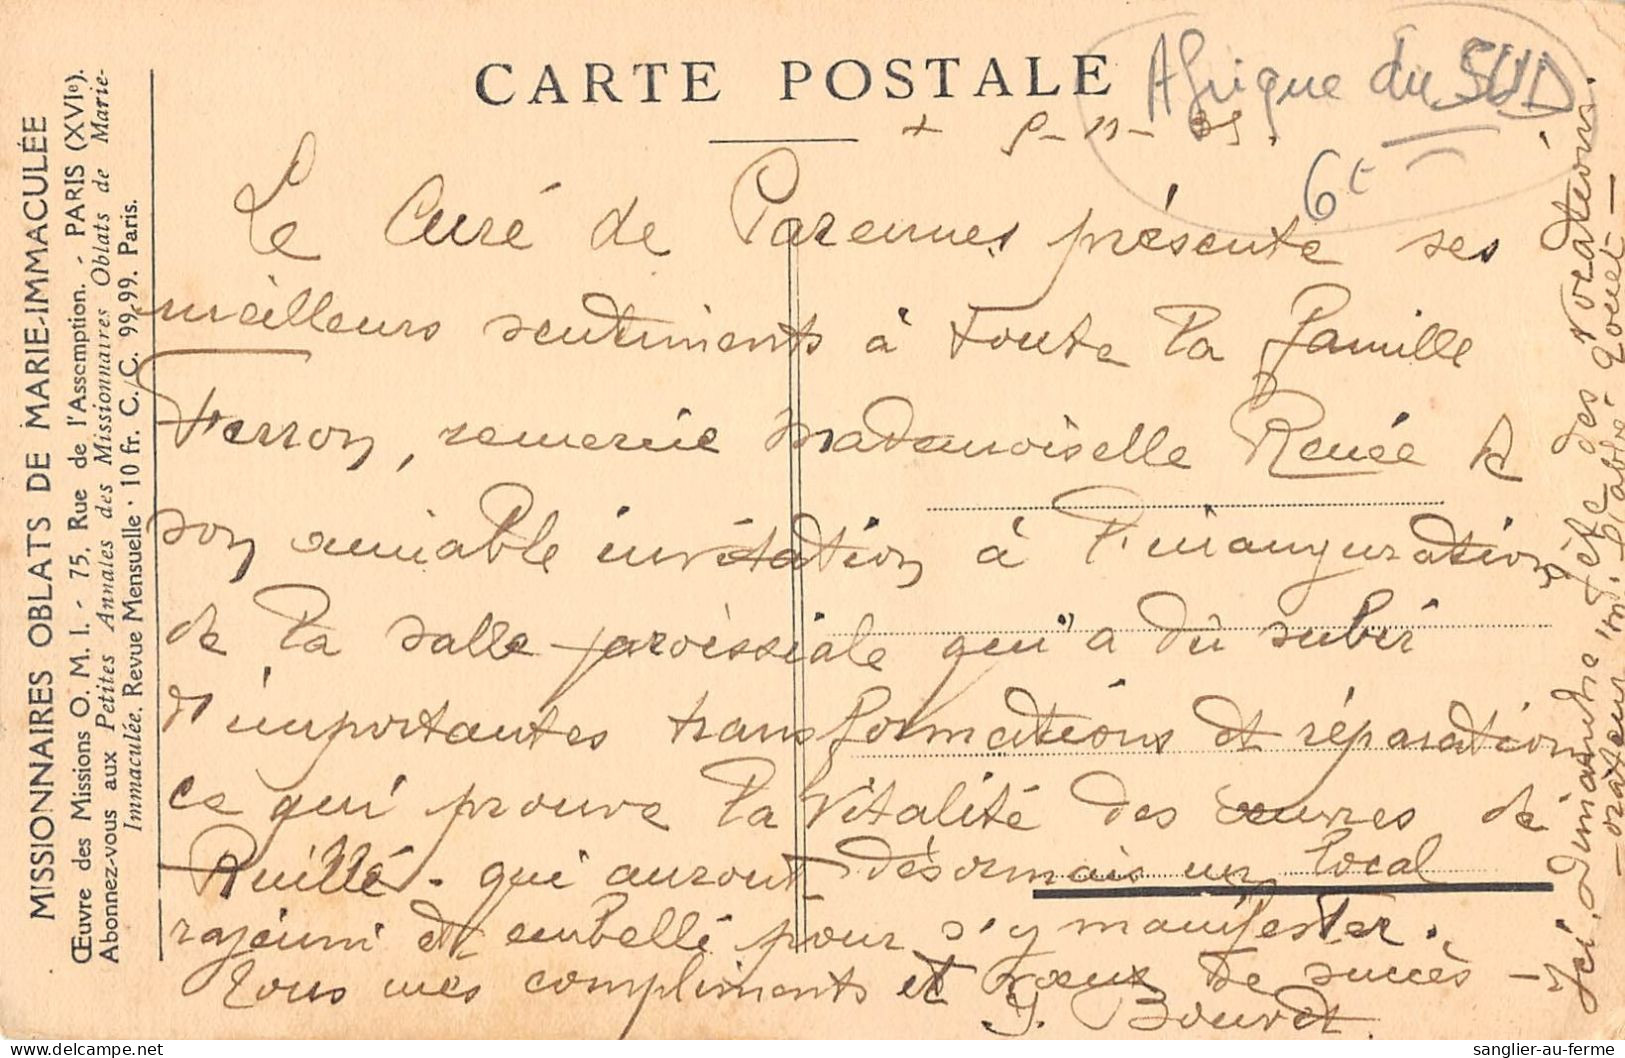 CARTE POSTALE
Afrique du SUD
6€
+ 5-11-35.
Le Curé de Parennes présente ses
meilleurs sentiments à toute la famille
Ferron, remercie Mademoiselle Renée de
son aimable invitation à l'inauguration
de la salle paroissiale qui a dû subir
d'importantes transformations et réparations
ce qui prouve la vitalité des œuvres de
Ruillé. qui auront désormais un local
rajeuni et embelli pour s'y manifester.
Tous mes compliments et vœux de succès -
J. Bouvet
Ici, Dimanche, fête des Vocations.
- orateur M. l'abbé Gouet -
MISSIONNAIRES OBLATS DE MARIE-IMMACULÉE
Œuvre des Missions O. M. I. - 75, Rue de l'Assomption. - PARIS (XVIe).
Abonnez-vous aux Petites Annales des Missionnaires Oblats de Marie-
Immaculée. Revue Mensuelle · 10 fr. C./C. 99-99. Paris.
sanglier-au-ferme